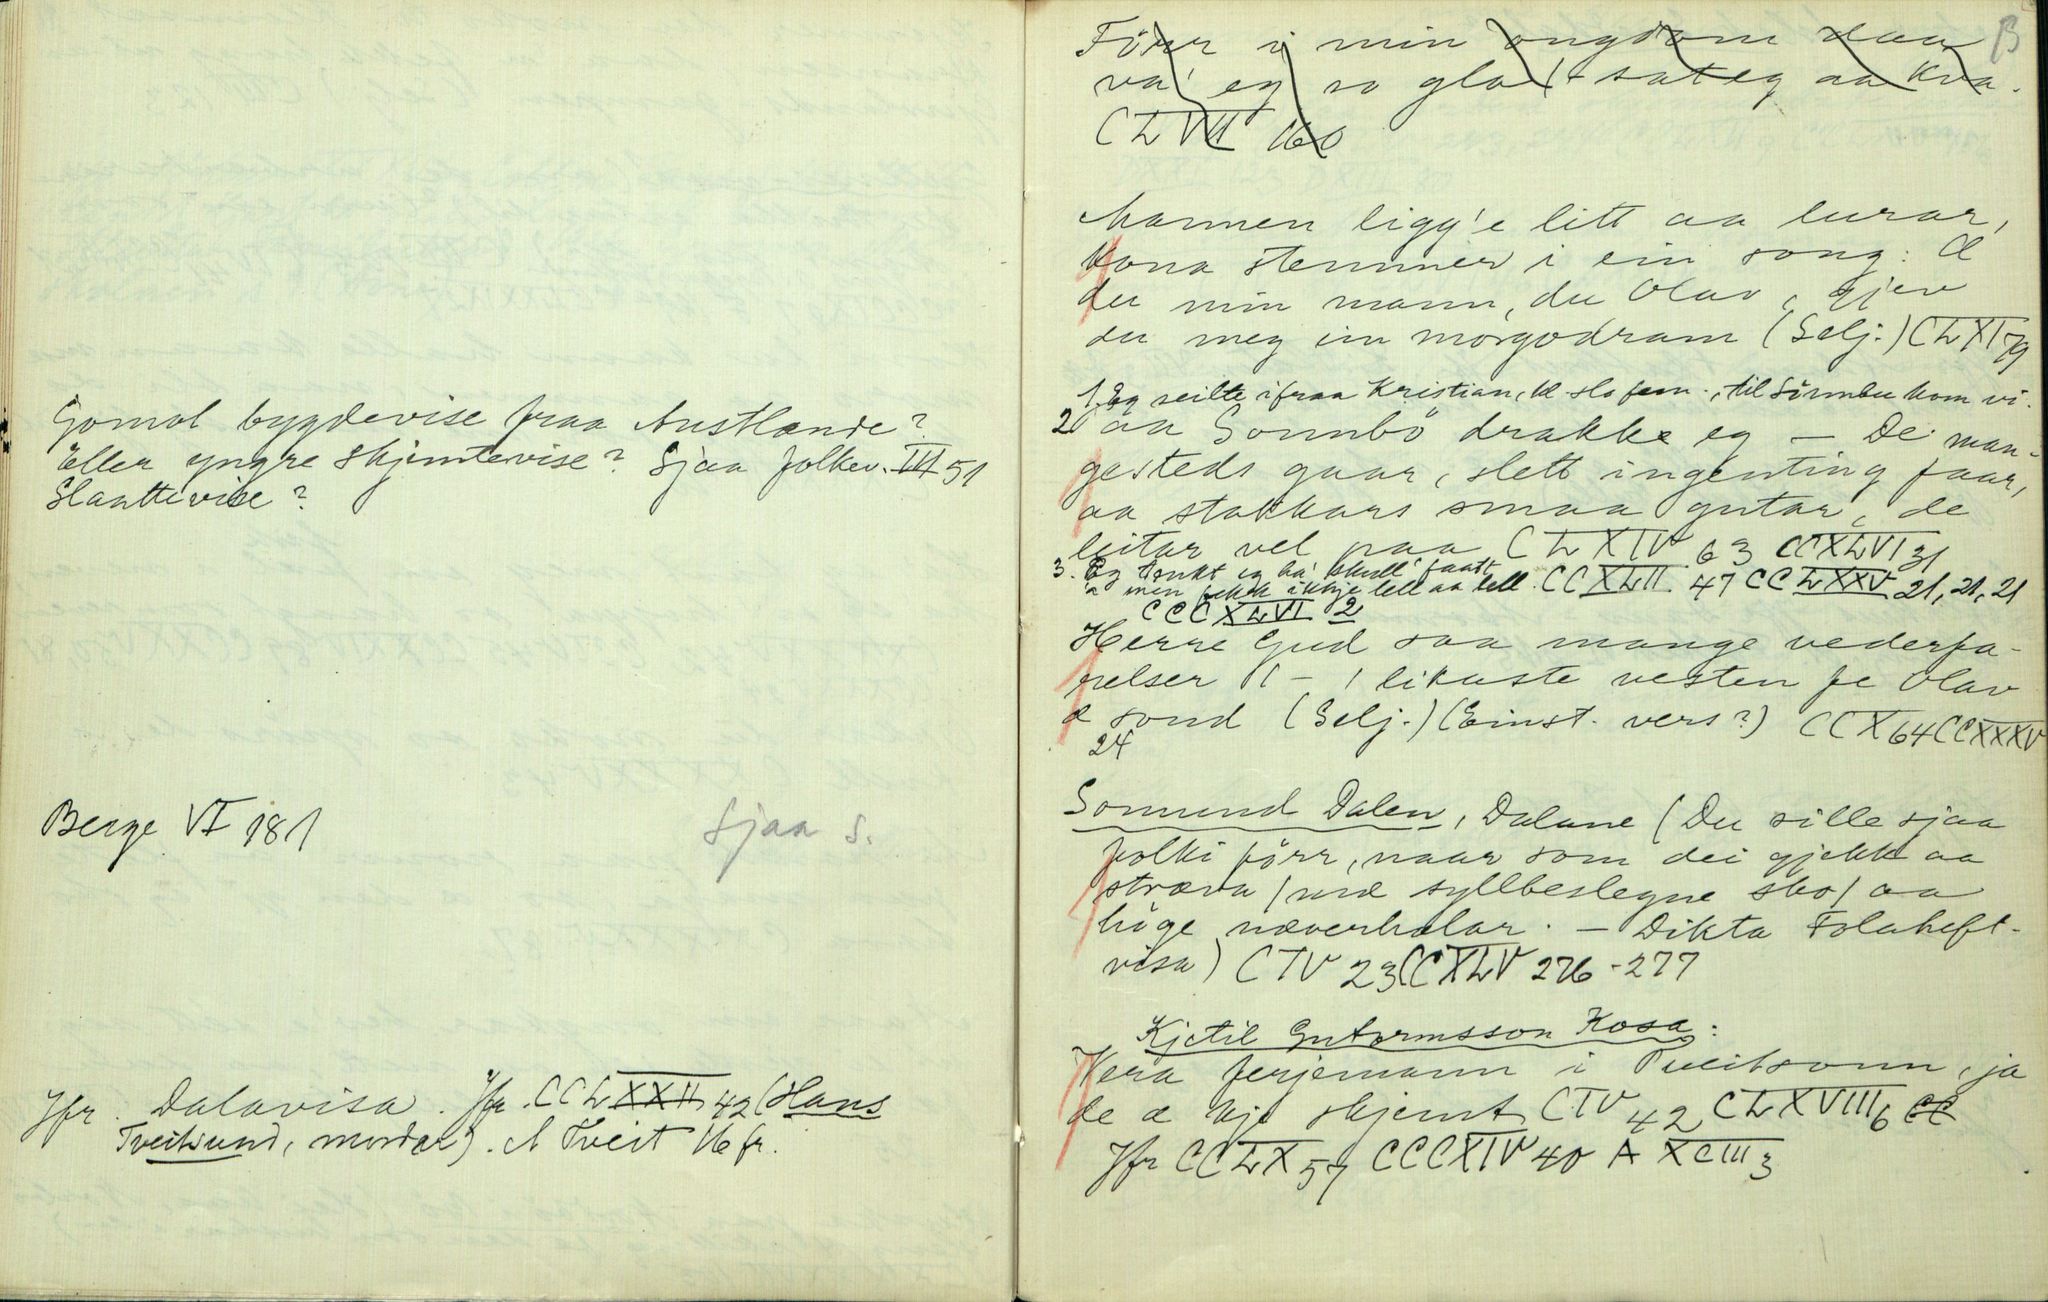 Gomol bygdevise fraa Austlande?
Eller yngre skjemtevise? Sjaa folkev. III 51
Slaattevise?
Berge VI 181
Sjaa s.
Jfr. Dalavisa. Jfr. CCLXXII 42 (Hans
Tveitsund, mordar). A Tveit 16 fr.
13
Förr i min ongdom daa
va' eg so gla' sat eg aa kva.
CLVII 160
Mannen ligg'e litt aa lurar,
kona stemmer i ein song: Å
du min mann, du Olav, gjev
du meg ein morgodram (Selj.) CLXI 79
1. Eg seilte ifraa Kristian, kl slo fem., til Sörumbu kom vi.
2. aa Sonnbö drakk eg — De man-
gesteds gaar, slett ingenting faar,
aa stakkars smaa gutar, de
leitar vel paa CLXIV 63 CCXLVI 31
3. Eg tenkt eg ha' skull' faatt
men fekk ikkje lell aa lell. CCXLII 47 CCLXXV 21, 21, 21
CCCXLVI 2
Herre Gud saa mange vederfa-
relser — likaste vesten fe Olav
æ sond (Selj.) (Einst. vers?) CCX 64 CCXXXV
24
Sonnund Dalen, Dalane (Du sille sjaa
folki förr, naar som dei gjekk aa
stræva / mæ syllbeslegne sko / aa
höge næverhalar. — Dikta Folaheft-
visa) CIV 23 CCXLV 276-277
Kjetil Gutormsson Kosa:
Vera ferjemann i Tveitsonn, ja
de æ kje skjemt CIV 42 CLXVIII 6 CC
Jfr CCLX 57 CCCXIV 40 A XCIII 3